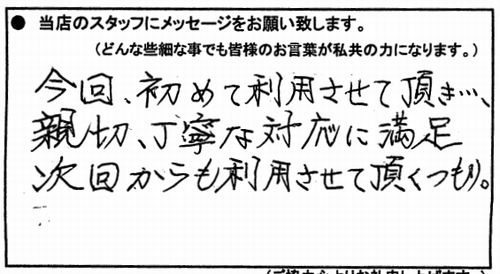 ● 当店のスタッフにメッセージをお願い致します。
（どんな些細な事でも皆様のお言葉が私共の力になります。）
今回、初めて利用させて頂き…、
親切、丁寧な対応に満足
次回からも利用させて頂くつもり。